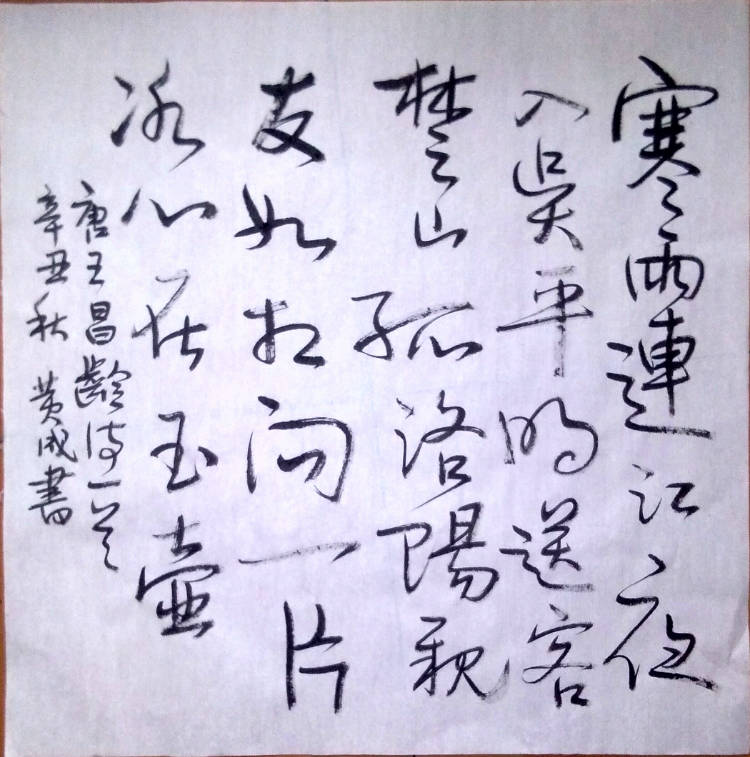 寒雨連江夜
入吳平明送客
楚山孤洛陽親
友如相問一片
冰心在玉壺
唐王昌齡詩一首
辛丑秋 黄成書